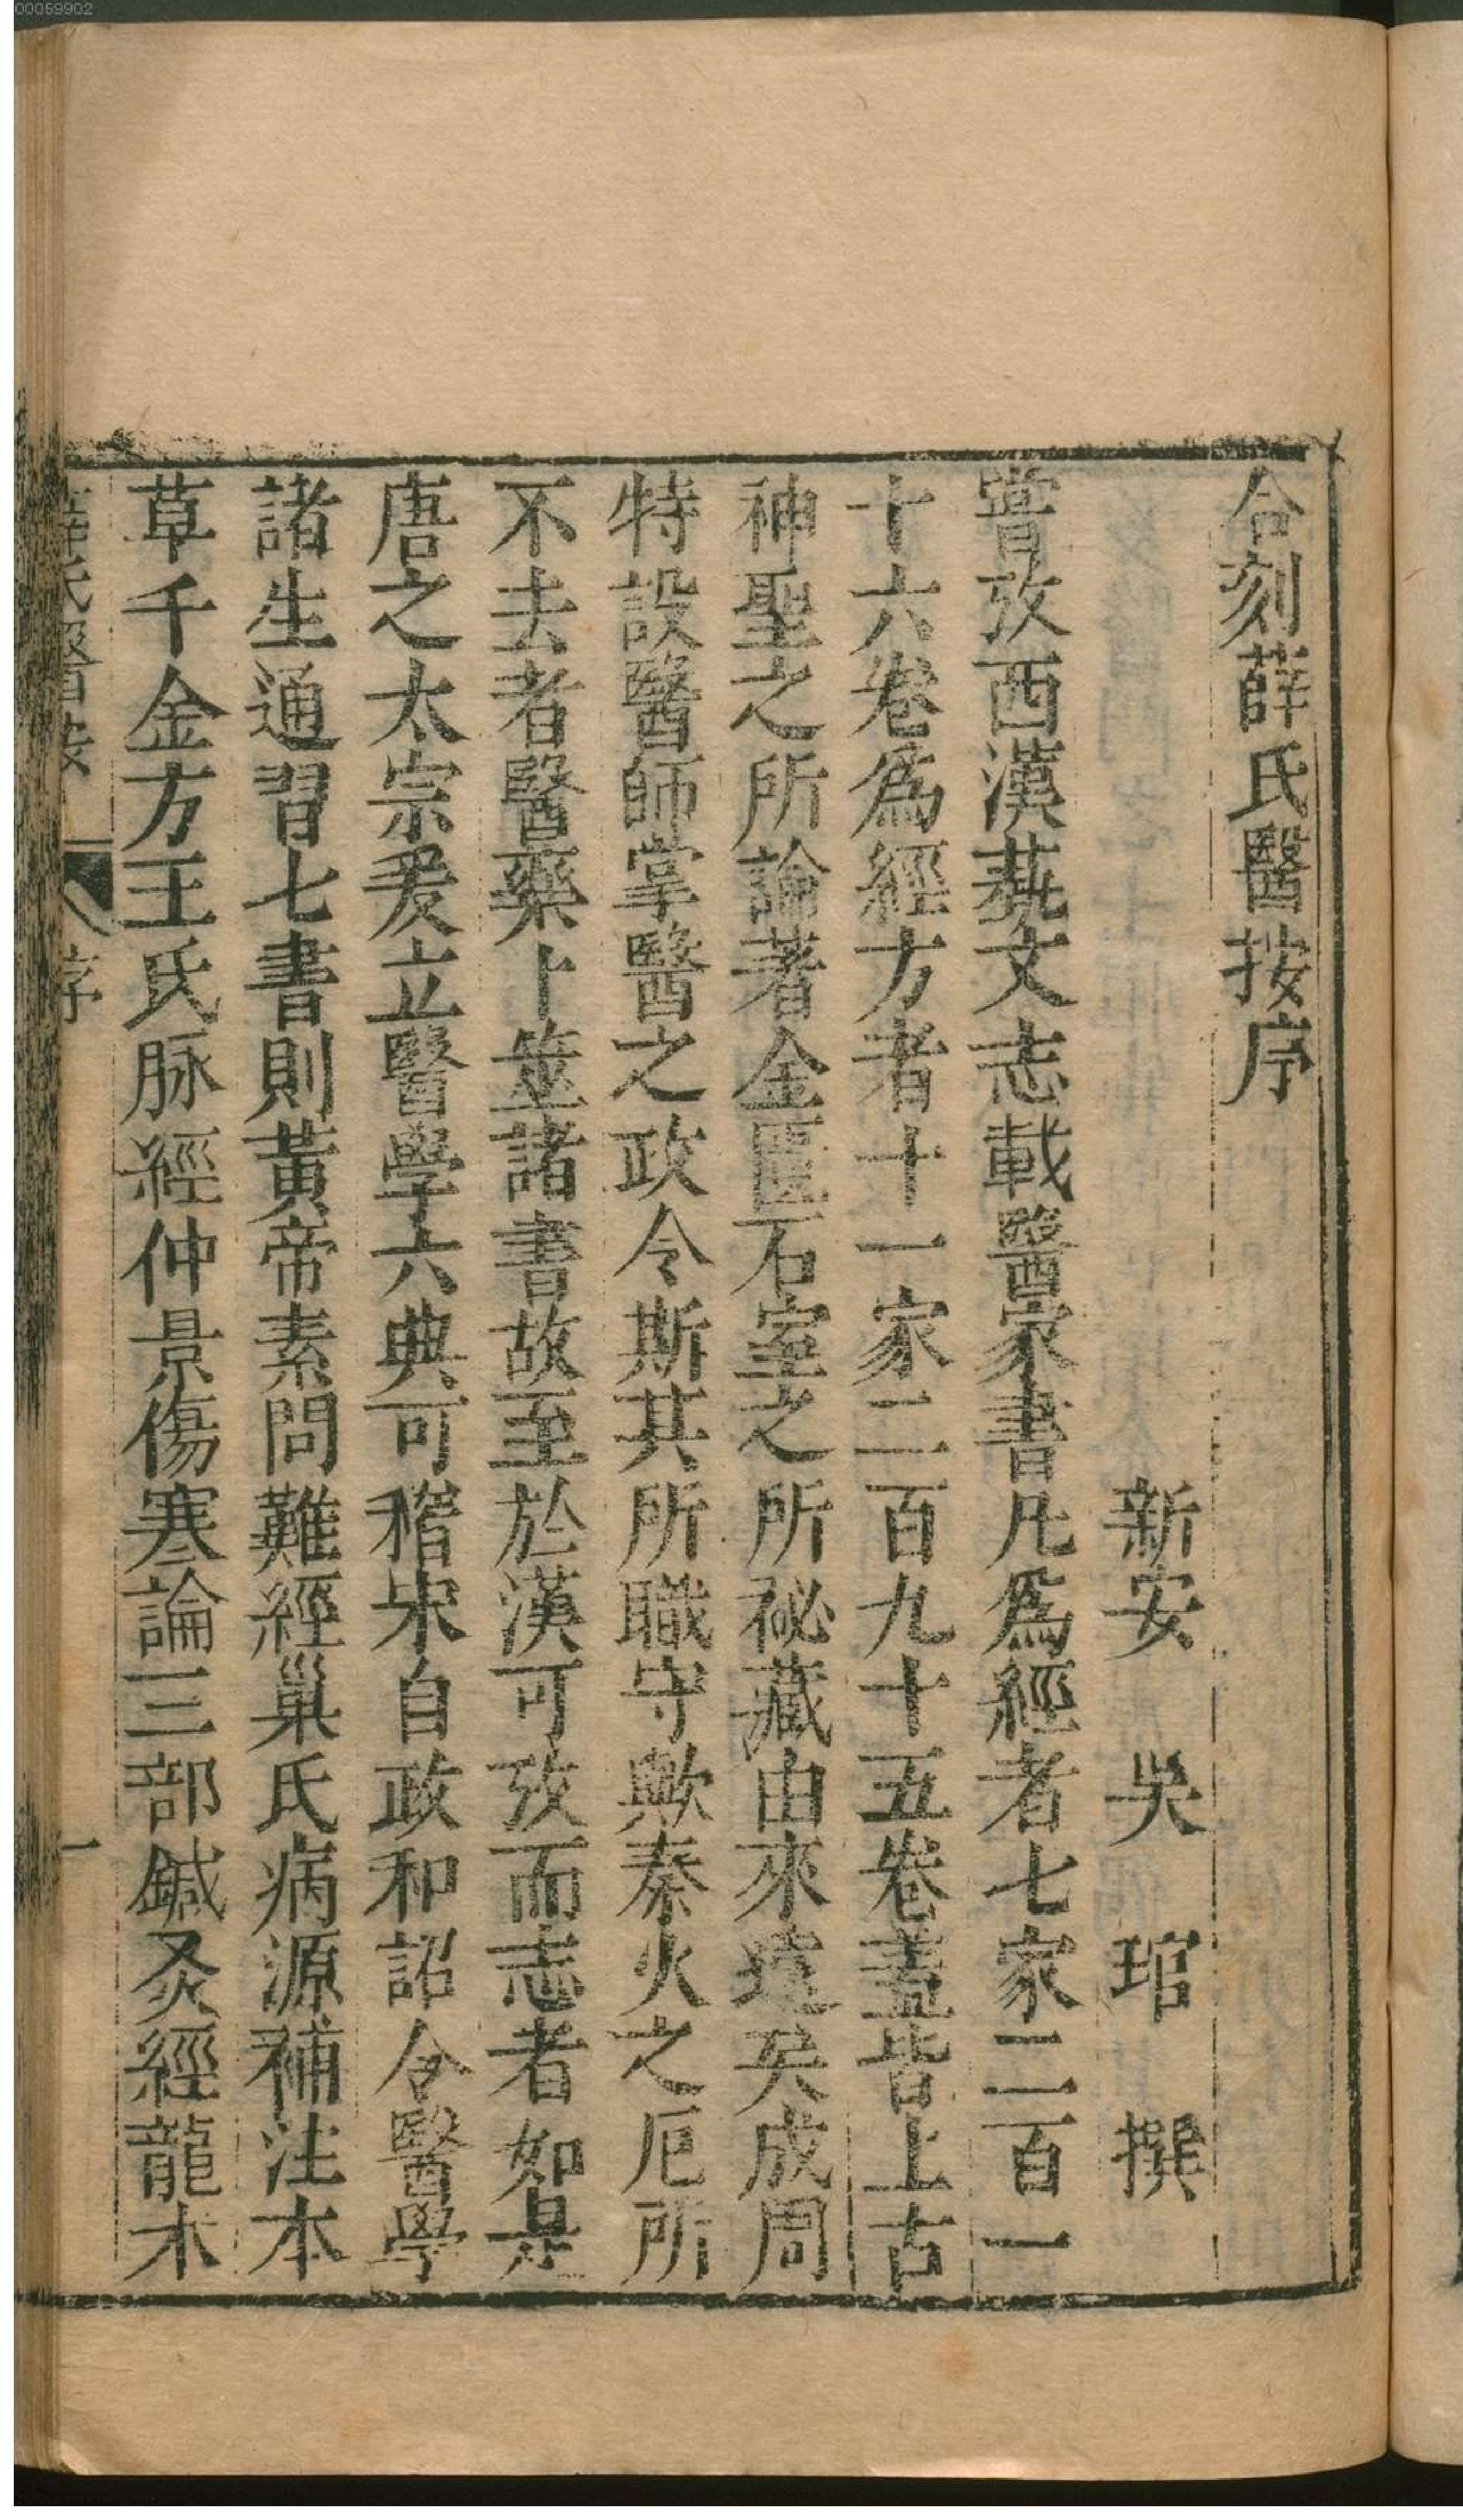 00059902
合刻薛氏醫按序
新安 吳 琯 撰
嘗攷西漢蓺文志載醫家書凡爲經者七家二百一
十六卷爲經方者十一家二百九十五卷蓋皆上古
神聖之所論著金匱石室之所祕藏由來遠矣成周
特設醫師掌醫之政令斯其所職守歟秦火之厄所
不去者醫藥卜筮諸書故至於漢可攷而志者如是
唐之太宗爰立醫學六典可稽宋自政和詔令醫學
諸生通習七書則黃帝素問難經巢氏病源補注本
草千金方王氏脉經仲景傷寒論三部鍼灸經龍木
薛氏醫按 序 一